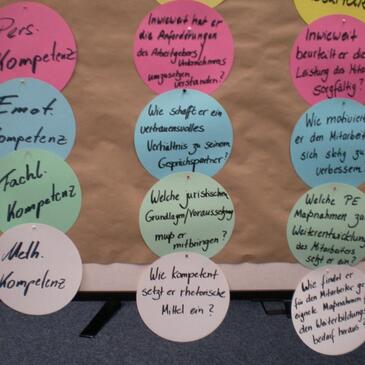 Pers.
Kompetenz
Inwieweit hat er
die Anforderungen
des Arbeitgebers/
Unternehmens
umzusetzen,
verstanden?
Inwieweit
beurteilt er die
Leistung des Mita
sorgfältig?
Emot.
Kompetenz
Wie schafft er ein
vertrauensvolles
Verhältnis zu seinem
Gesprächspartner?
Wie motivier
er den Mitarbeit
sich stetig zu
verbessern
Fachl.
Kompetenz
Welche juristischen
Grundlagen/Voraussetzung
muß er
mitbringen?
Welche PE
Maßnahmen zur
Weiterentwicklung
des Mitarbeiters
setzt er ein?
Meth.
Kompetenz
Wie kompetent
setzt er rhetorische
Mittel ein?
Wie findet er
für den Mitarbeiter ge
eignete Maßnahmen
den Weiterbildungs
bedarf heraus?